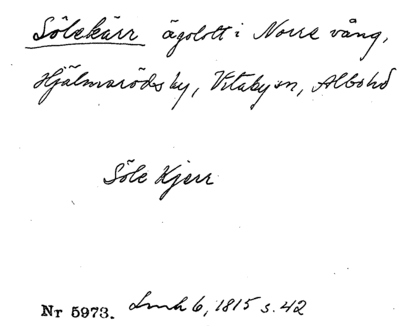 Sölekärr ägolott i Norre vång,
Hjälmarödsby, Vitaby sn, Albo hd
Söle Kjerr
Nr 5973. Lmh 6, 1815 s. 42